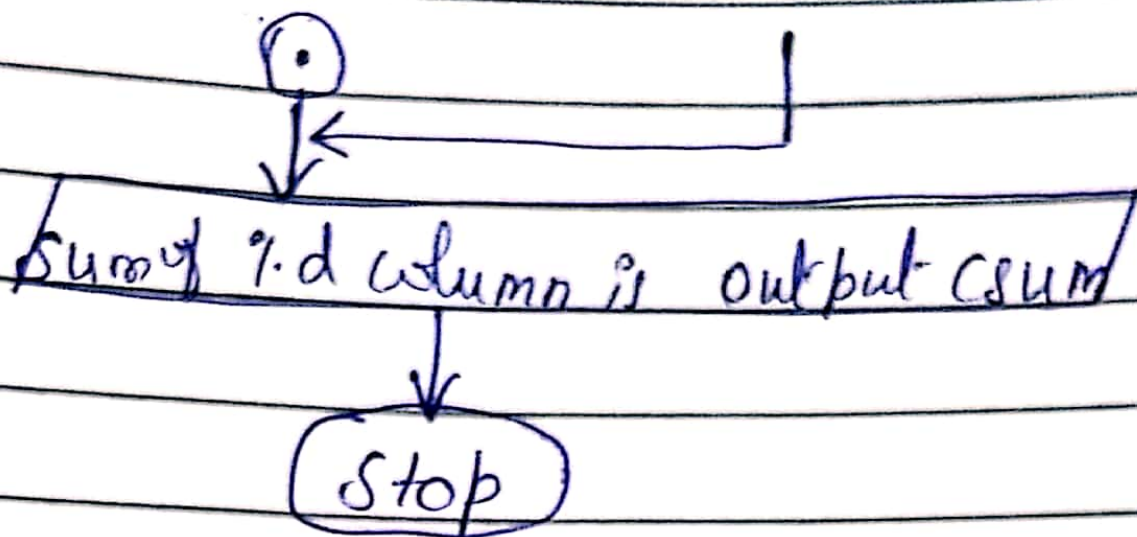 Sum of %d column is output csum
Stop